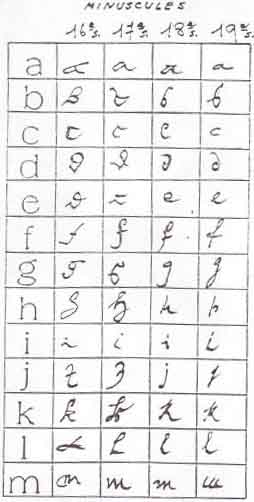 MINUSCULES
16e s. 17e s. 18e s. 19e s.
a a a a a
b b b b b
c c c c c
d d d d d
e e e e e
f f f f f
g g g g g
h h h h h
i i i i i
j j j j j
k k k k k
l l l l l
m m m m m